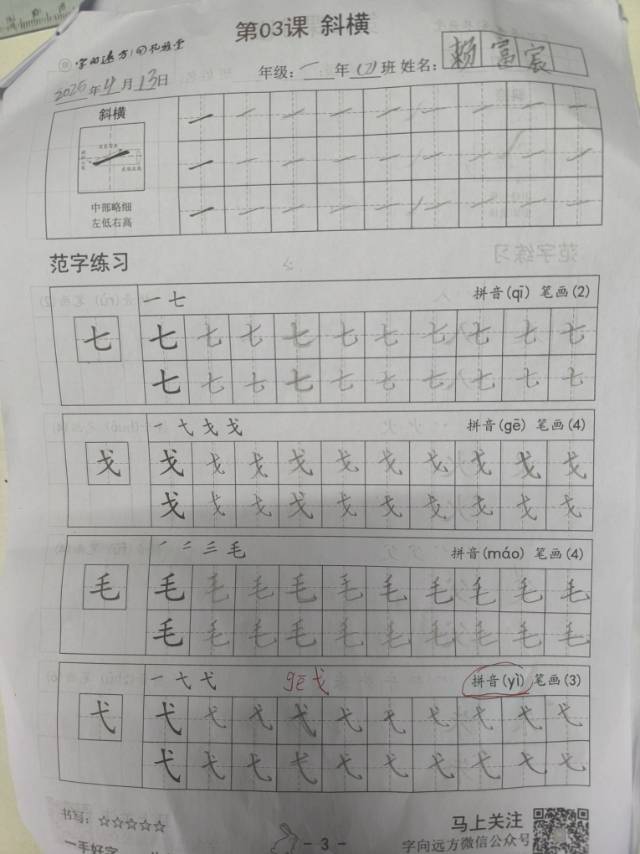 第03课 斜横
字向远方
2025年4月13日 年级:一年(2)班 姓名:赖富宸
斜横
中部略细
左低右高
范字练习
一 七 拼音(qī) 笔画(2)
七 七 七 七 七 七 七 七 七 七 七
七 七 七 七 七 七 七 七 七 七
一 弋 戈 戈 拼音(gē) 笔画(4)
戈 戈 戈 戈 戈 戈 戈 戈 戈 戈 戈
戈 戈 戈 戈 戈 戈 戈 戈 戈 戈
一 二 三 毛 拼音(máo) 笔画(4)
毛 毛 毛 毛 毛 毛 毛 毛 毛 毛 毛
毛 毛 毛 毛 毛 毛 毛 毛 毛 毛
一 弋 弋 gē 弋 拼音(yì) 笔画(3)
弋 弋 弋 弋 弋 弋 弋 弋 弋 弋 弋
弋 弋 弋 弋 弋 弋 弋 弋 弋 弋
书写:☆☆☆☆☆
一手好字
- 3 -
马上关注
字向远方微信公众号